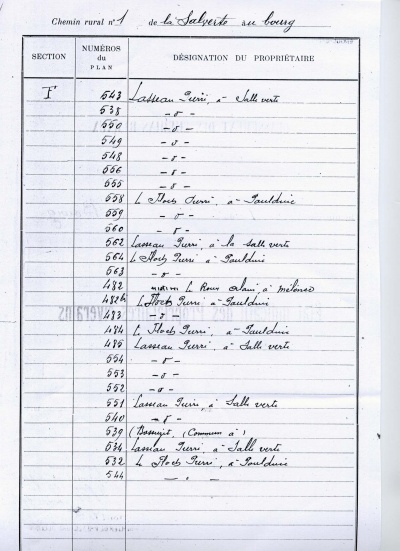 Chemin rural n° 1 de la Salverte au bourg
SECTION NUMÉROS du PLAN DÉSIGNATION DU PROPRIÉTAIRE
F 543 Lasseau Pierre, à Salle verte
538 — d° —
550 — d° —
549 — d° —
548 — d° —
556 — d° —
555 — d° —
558 Le Floch Pierre, à
559 — d° —
560 — d° —
562 Lasseau Pierre, à la Salle verte
564 Le Floch Pierre à
563 — d° —
482 Le Roux Alain, à
482 bis Le Floch Pierre à
483 — d° —
484 Le Floch Pierre, à
485 Lasseau Pierre, à Salle verte
554 — d° —
553 — d° —
552 — d° —
551 Lasseau Pierre, à Salle verte
540 — d° —
539 (Commun à)
534 Lasseau Pierre, à Salle verte
532 Le Floch Pierre, à
544 — d° —